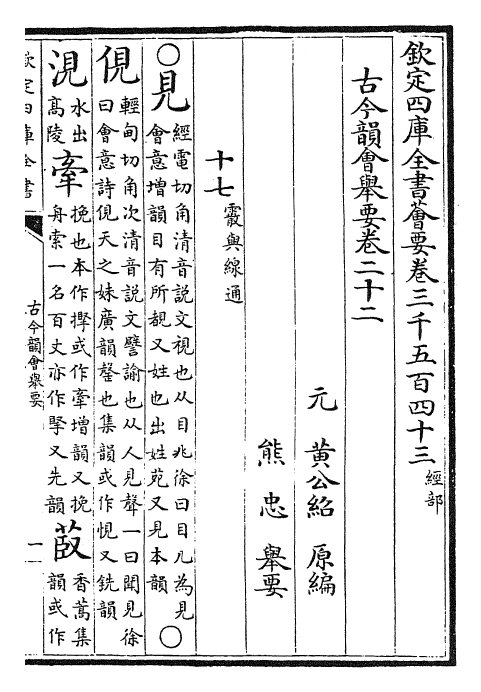 欽定四庫全書薈要卷三千五百四十三 經部
古今韻會舉要卷二十二
元 黃公紹 原編
熊忠 舉要
十七 霰與線通
○見 經電切角清音說文視也从目兆徐曰目儿為見
會意增韻目有所覩又姓也出姓苑又見本韻 ○
俔 輕甸切角次清音說文譬諭也从人見聲一曰聞見徐
曰會意詩俔天之妹廣韻罄也集韻或作悓又銑韻
涀 水出
高陵
牽 挽也本作㩃或作牽增韻又挽
舟索一名百丈亦作又先韻
菣 香蒿集
韻或作
欽定四庫全書
古今韻會舉要
一